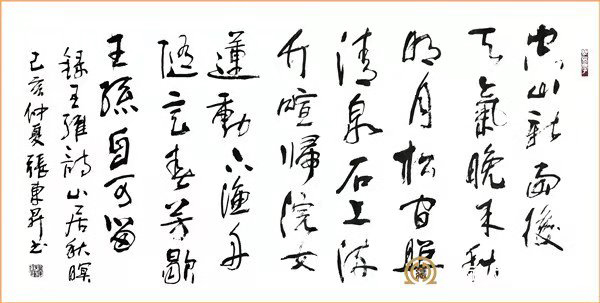 空山新雨後
天氣晚來秋
明月松間照
清泉石上流
竹喧歸浣女
蓮動下漁舟
隨意春芳歇
王孫自可留
錄王維詩山居秋暝
己亥仲夏張東昇书